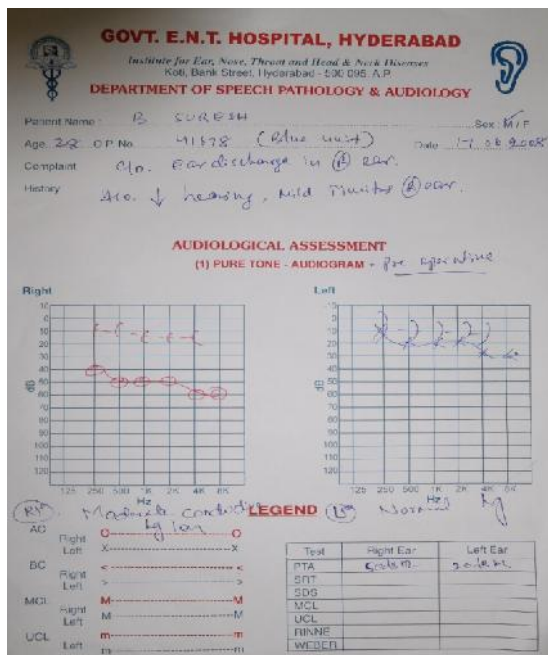 GOVT. E.N.T. HOSPITAL, HYDERABAD
Institute for Ear, Nose, Throat and Head & Neck Diseases
Koti, Bank Street, Hyderabad - 500 095, A.P.
DEPARTMENT OF SPEECH PATHOLOGY & AUDIOLOGY
Patient Name : B SURESH Sex : M / F
Age 28 O P No. 41578 (Blue unit) Date 2008
Complaint C/o. Ear discharge in (R) ear.
History H/o. ↓ hearing, Mild Tinnitus (R) ear.
AUDIOLOGICAL ASSESSMENT
(1) PURE TONE - AUDIOGRAM - Pre operative
Right Left
10 0 10 20 30 40 50 60 70 80 90 100 110 120
dB
125 250 500 1K 2K 4K 8K
Hz
10 0 10 20 30 40 50 60 70 80 90 100 110 120
dB
125 250 500 1K 2K 4K 8K
Hz
Moderate conductive LEGEND Normal hg
hg loss
AC Right O O
Left X X
BC Right < <
Left > >
MCL Right M M
Left M M
UCL Right m m
Left m m
Test Right Ear Left Ear
PTA
SRT
SDS
MCL
UCL
RINNE
WEBER